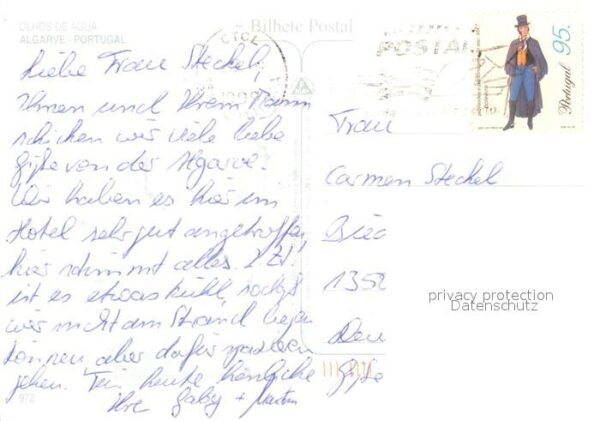 OLHOS DE AGUA
ALGARVE - PORTUGAL
Bilhete Postal
CTCI
POSTAL
95.
Portugal
Liebe Frau Steckel,
Ihnen und Ihrem Mann
schicken wir viele liebe
Grüße von der Algarve.
Wir haben es hier im
Hotel sehr gut angetroffen,
hier stimmt alles. Z.Zt.
ist es etwas kühl, so daß
wir nicht am Strand liegen
können aber dafür spazieren
gehen. Für heute herzliche
Grüße
Ihre Gaby + Martin
972
Frau
Carmen Steckel
1352
privacy protection
Datenschutz